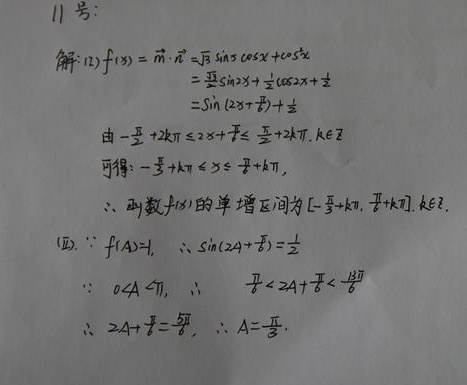 11号:
解:(I) f(x) = m⃗·n⃗ = √3 sinx cosx + cos²x
= √3/2 sin2x + 1/2 cos2x + 1/2
= Sin (2x+π/6) + 1/2
由 -π/2 + 2kπ ≤ 2x + π/6 ≤ π/2 + 2kπ. k∈Z
可得: -π/3 + kπ ≤ x ≤ π/6 + kπ,
∴ 函数f(x)的单增区间为 [-π/3+kπ, π/6+kπ]. k∈Z.
(II). ∵ f(A)=1, ∴ sin(2A+π/6) = 1/2
∵ 0<A<π, ∴ π/6 < 2A+π/6 < 13π/6
∴ 2A+π/6 = 5π/6, ∴ A=π/3.